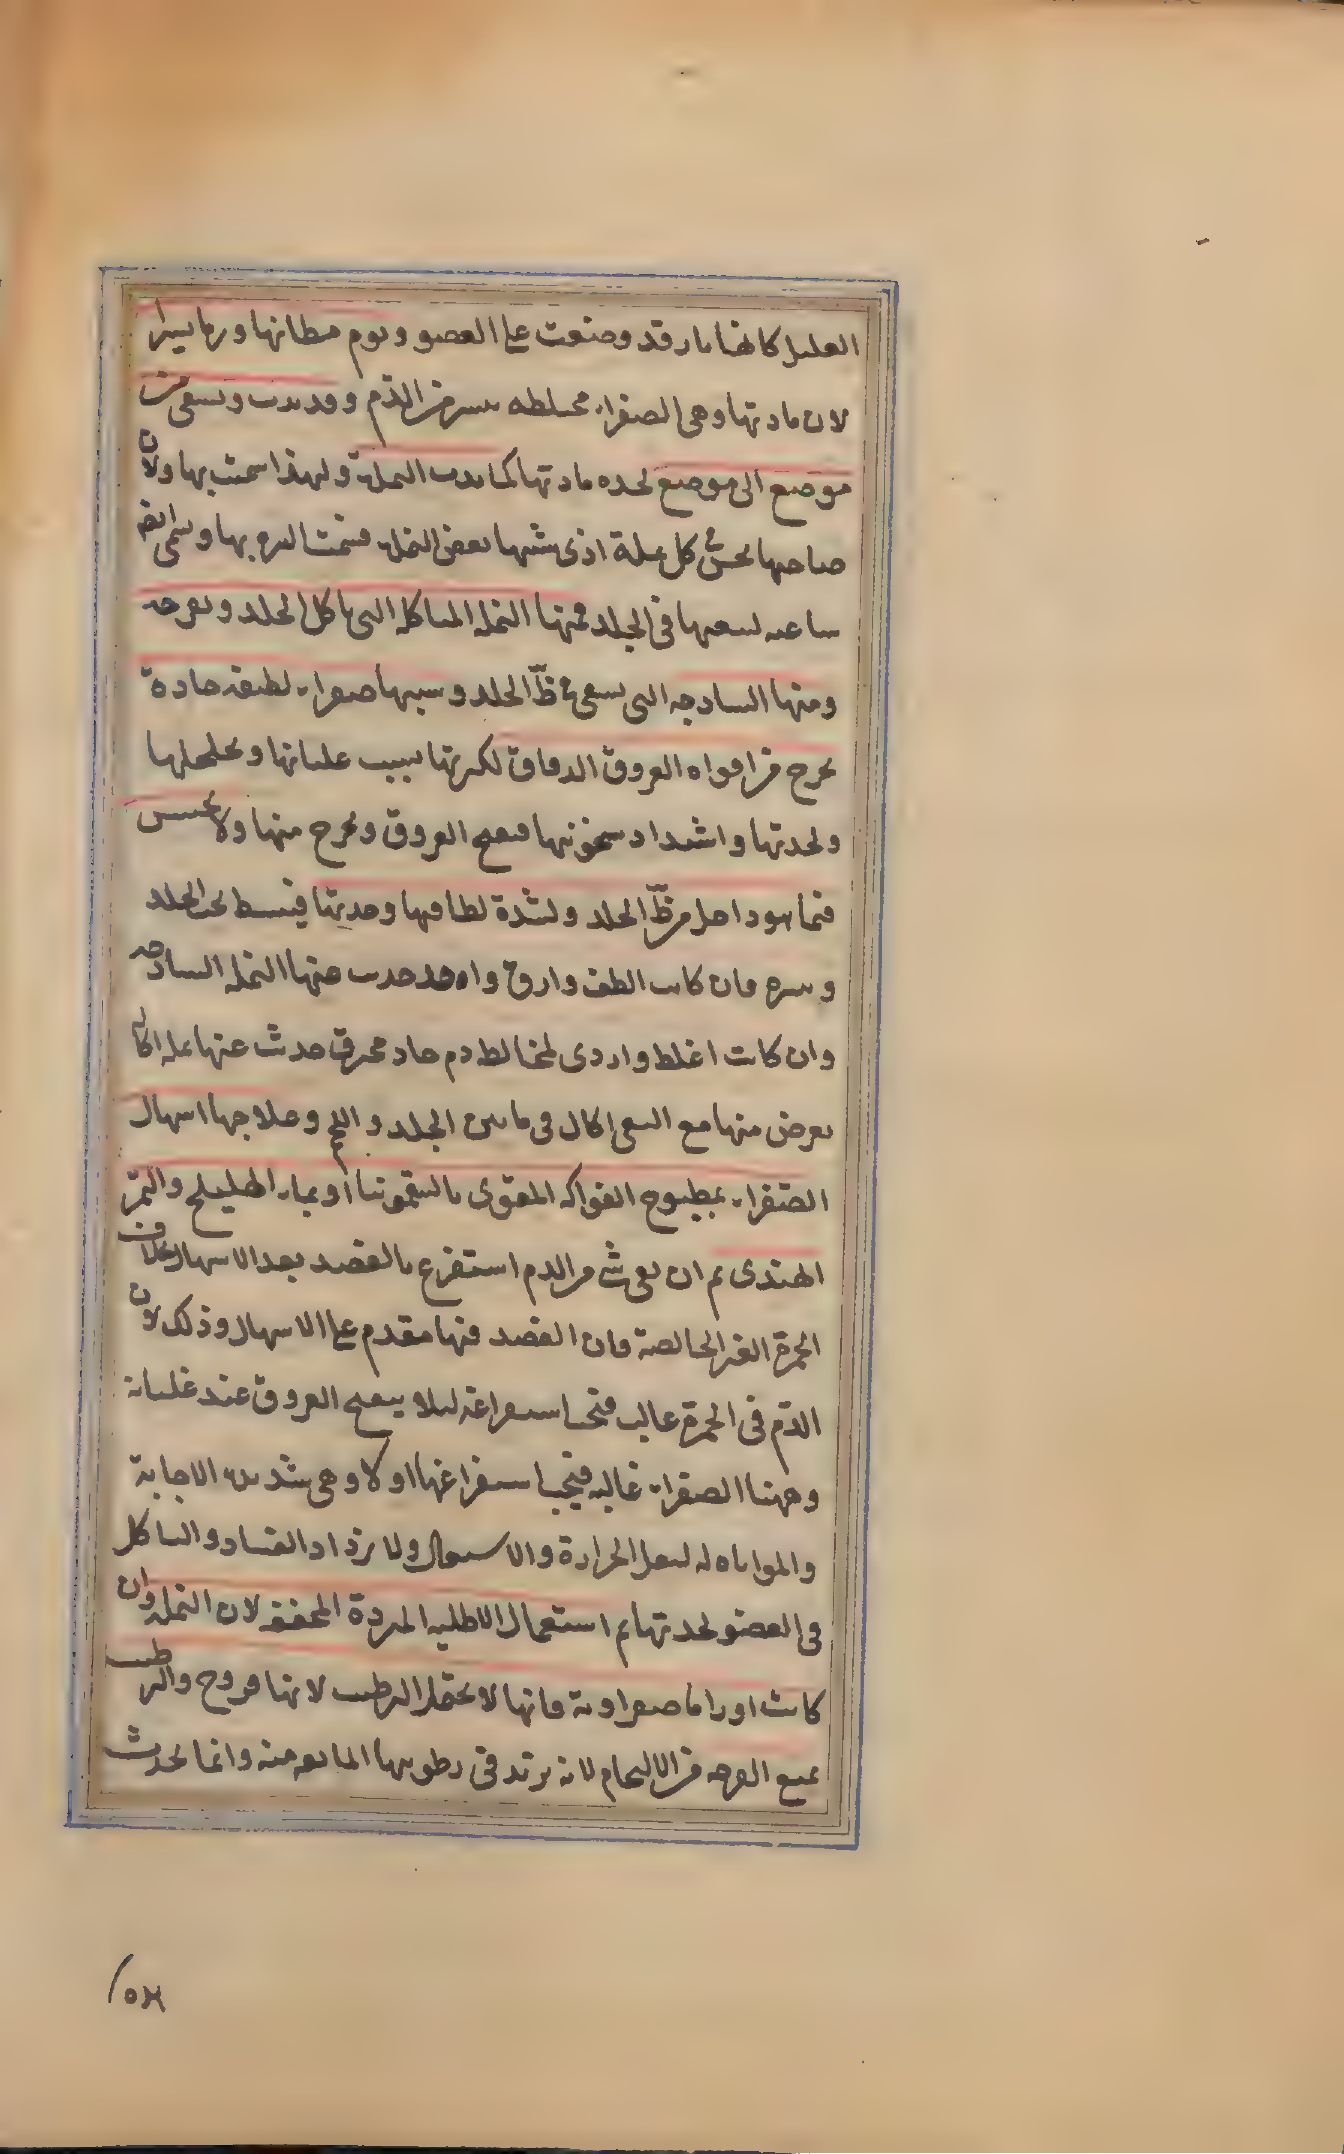 العليل كانها نار قد وضعت على العضو وتورم مطانها ورما يسيرا
لان مادتها وهى الصفراء مختلطه بيسير من الدم وقد تدب وتسعى من
موضع الى موضع لحده مادتها كما تدب النملة ولهذا سميت بها ولان
صاحبها يحس فى كل عملة اذى يشبها بعض النملة فسميت البثره بها وتسمى ايضا
ساعيه لسعيها فى الجلد فمنها النمله المتاكله التى تاكل الجلد وتقرحه
ومنها الساذجه التى تسعى فى ظ الجلد وسببها صفراء لطيفه حادة
تخرج من افواه العروق الدقاق لكثرتها بسبب غليانها وتخلخلها
ولحدتها واشتداد سخونتها فتفتح العروق وتخرج منها ولا تحتبس
فيما هو داخل من ظ الجلد ولشدة لطافتها وحدتها فينبسط تحت الجلد
وبثره فان كانت الطف وارق واحد حدث منها النمله الساذجه
وان كانت اغلظ واردى لمخالطه دم حاد محرق حدث عنها نمله اكاله
يعرض منها مع السعى اكال فى ما بين الجلد واللحم وعلاجها اسهال
الصفراء بمطبوخ الفواكه المقوى بالسقمونيا او بماء الهليلج والتمر
الهندى ثم ان بقى شى من الدم استفرغ بالفصد بعد الاسهال بخلاف
الحمرة الغير الخالصة فان الفصد فيها مقدم على الاسهال وذلك لان
الدم فى الحمرة غالب فيجب استفراغه ليلا يفتح العروق عند غليانه
وههنا الصفراء غالبه فيجب استفراغها اولا وهى شديده الاجابة
والمواتاه له لفعل الحرارة والاسهال ولا يزداد الفساد والتاكل
فى العضو لحدتها ثم استعمال الاطليه المبردة المجففه لان النمله وان
كانت اوراما صفراوية فانها لا تحتمل الترطيب لانها قروح والترطيب
يمنع القرحه من الالتحام لانه يزيد فى رطوبتها المانعه منه وانما يحدث